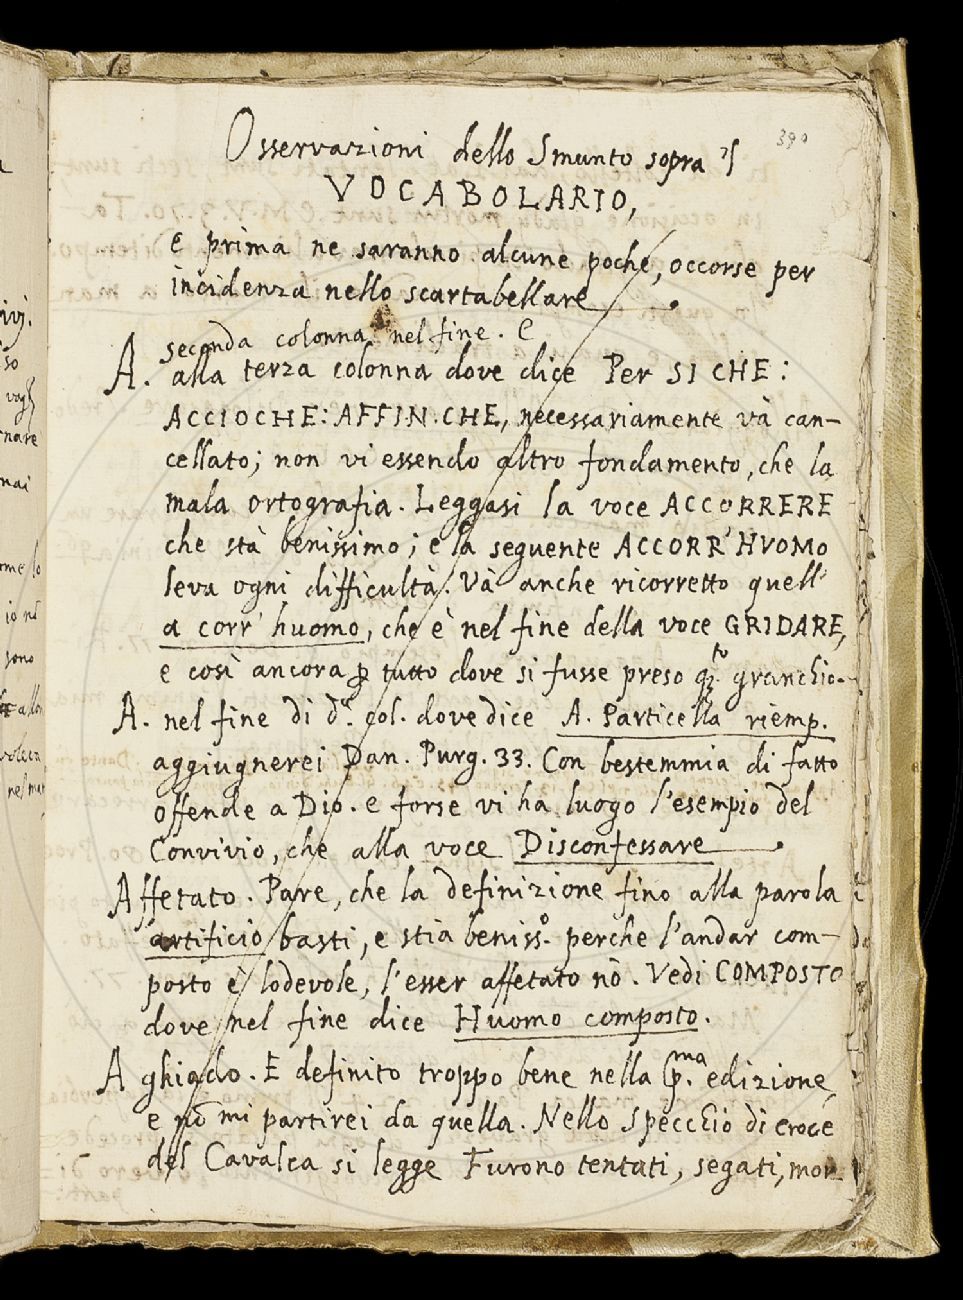 390
Osservazioni dello Smunto sopra 'l
VOCABOLARIO,
e prima ne saranno alcune poche, occorse per
incidenza nello scartabellare
seconda colonna nel fine. E
A. alla terza colonna dove dice Per SI CHE:
ACCIOCHE: AFFIN.CHE, necessariamente và can-
cellato; non vi essendo altro fondamento, che la
mala ortografia. Leggasi la voce ACCORRERE
che stà benissimo; e la seguente ACCORR'HVOMO
leva ogni difficultà. Và anche ricorretto quell'
a corr' huomo, che è nel fine della voce GRIDARE,
e così ancora p tutto dove si fusse preso q.to granchio.
A. nel fine di d.a col. dove dice A. Particella riemp.
aggiugnerei Dan. Purg. 33. Con bestemmia di fatto
offende a Dio. e forse vi ha luogo l'esempio del
Convivio, che alla voce Disconfessare
Affetato. Pare, che la definizione fino alla parola
artificio basti, e stia beniss.o perche l'andar com-
posto è lodevole, l'esser affetato nò. Vedi COMPOSTO
dove nel fine dice Huomo composto.
A ghiado. E definito troppo bene nella p.ma edizione,
e nō mi partirei da quella. Nello Specchio di croce
del Cavalca si legge Furono tentati, segati, mor-